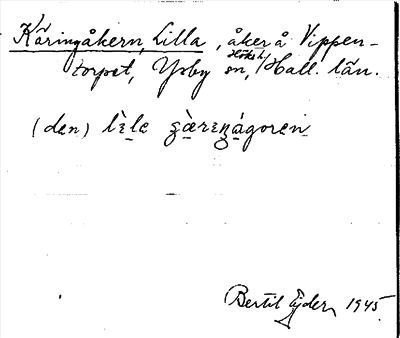 Käringåkern, Lilla, åker å Vippen-
torpet, Ysby sn, Höks h Hall. län.
(den) lìle çæ̀renágoren
Bertil Ejder 1945